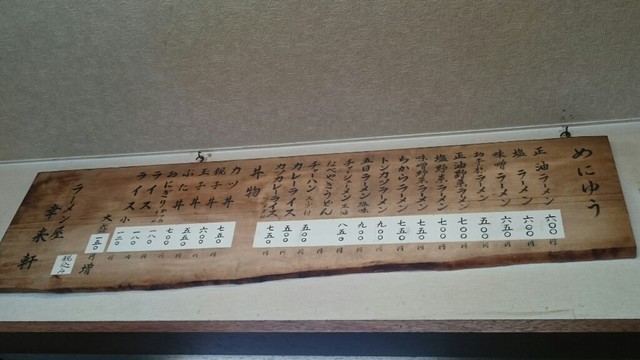 めにゆう
正油ラーメン 六〇〇円
塩ラーメン 六〇〇円
味噌ラーメン 六五〇円
ラーメン 五〇〇円
正油野菜ラーメン 七〇〇円
塩野菜ラーメン 七〇〇円
味噌野菜ラーメン 七五〇円
ちからラーメン 七五〇円
トンカツラーメン 九〇〇円
五目ラーメン 九〇〇円
チャーシューメン 八五〇円
なべやきうどん
チャーハン 五五〇円
カレーライス 五〇〇円
カツカレーライス 七五〇円
丼物
カツ丼 七五〇円
親子丼 六〇〇円
玉子丼 五五〇円
ぶた丼 七〇〇円
おにぎり 一八〇円
ライス 一八〇円
ライス小 一三〇円
大盛 一五〇円増
ラーメン屋
幸来軒
税込み